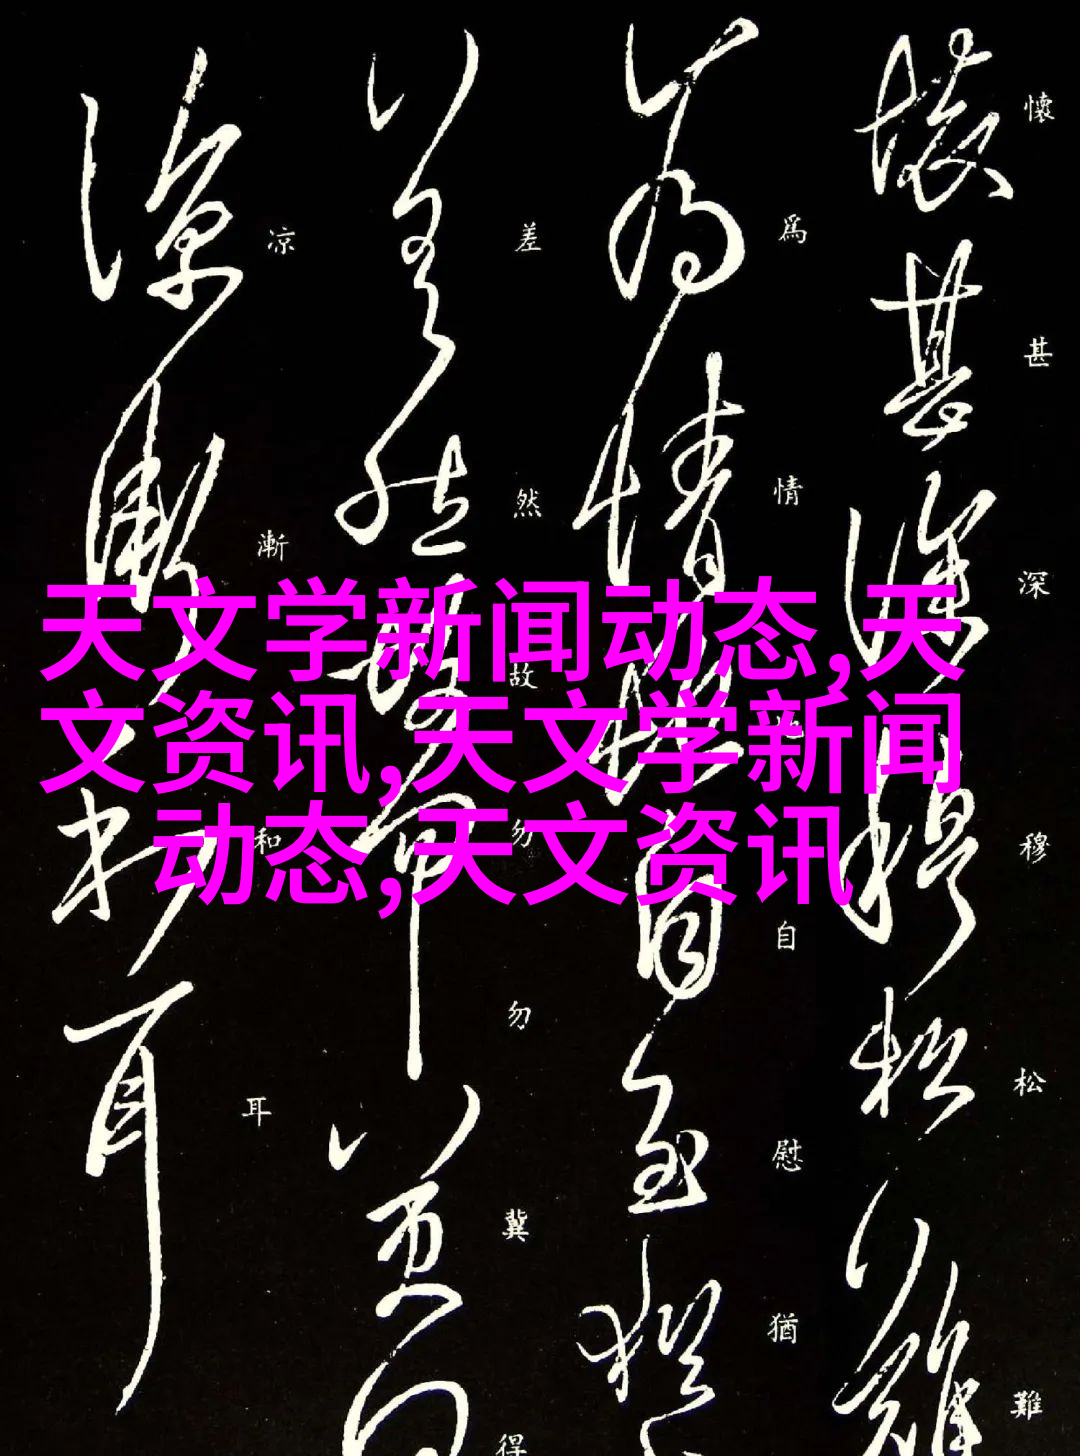 天文学新闻动态,天
文资讯,天文学新闻
动态,天文资讯
懷甚深穆松難
爲情地自慰猶
差然故勿勿冀得
凉漸和耳